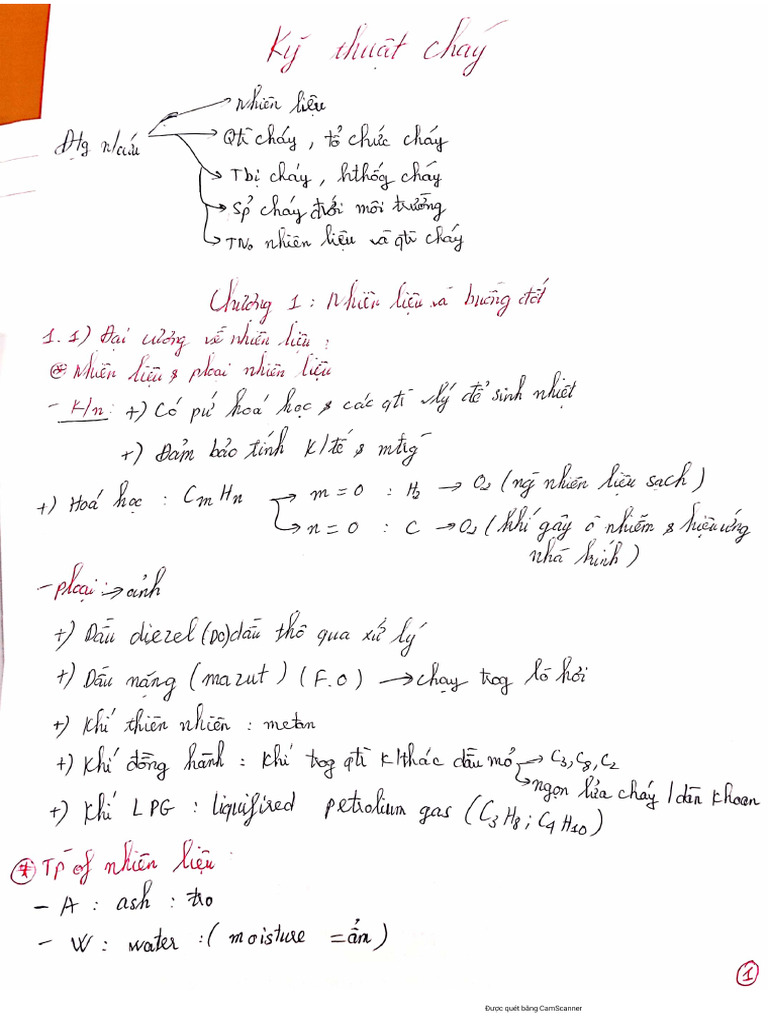 Kỹ thuật cháy
Đtg n/cứu
Nhiên liệu
Qtì cháy, tổ chức cháy
Tbị cháy, hthốg cháy
Sp̉ cháy đ/với môi trường
TNo nhiên liệu và qtì cháy
Chương 1 : Nhiên liệu và buồng đốt
1.1) Đại cương về nhiên liệu :
* Nhiên liệu & ploại nhiên liệu
- K/n : +) Có pứ hoá học & các qtì vlý để sinh nhiệt
+) Đảm bảo tính K/tế & mtrg
+) Hoá học : CmHn → m = 0 : H2 → O2 (ng nhiên liệu sạch)
→ n = 0 : C → O2 (khí gây ô nhiễm & hiệu ứng
nhà kính)
- ploại : → ảnh
+) Dầu diezel (DO) dầu thô qua xử lý
+) Dầu nặng (mazut) (F.O) → chạy trog lò hơi
+) Khí thiên nhiên : metan
+) Khí đồng hành : Khí trog qtì k/thác dầu mỏ → C3, C8, C2
→ ngọn lửa cháy / dàn khoan
+) Khí LPG : liquifired petrolium gas (C3H8 ; C4H10)
* Tp of nhiên liệu :
- A : ash : tro
- W : water : ( moisture = ẩm )
1
Được quét bằng CamScanner